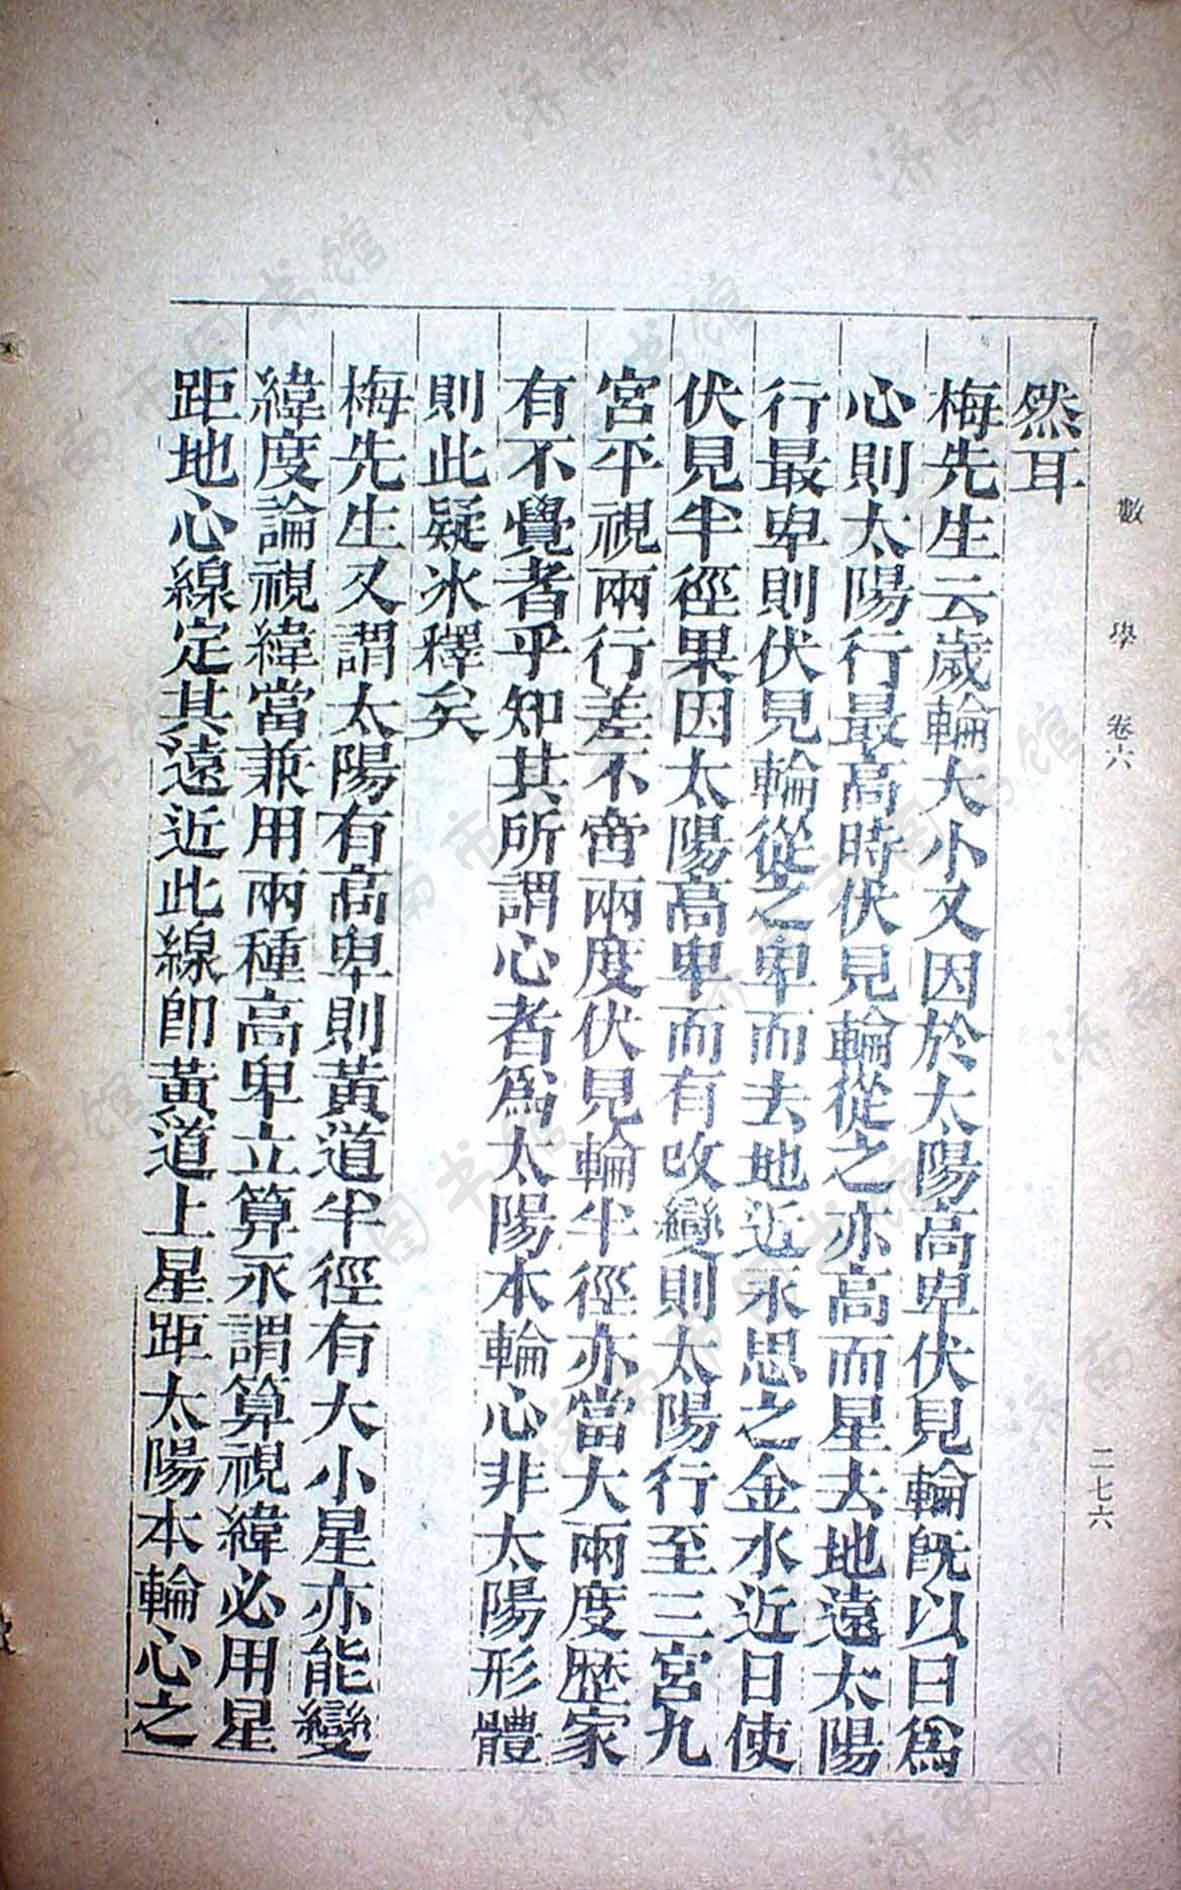 數學 卷六 二七六
然耳
梅先生云歲輪大小又因於太陽高卑伏見輪旣以日爲
心則太陽行最高時伏見輪從之亦高而星去地遠太陽
行最卑則伏見輪從之卑而去地近永思之金水近日使
伏見半徑果因太陽高卑而有改變則太陽行至三宮九
宮平視兩行差不啻兩度伏見輪半徑亦當大兩度歴家
有不覺者乎知其所謂心者爲太陽本輪心非太陽形體
則此疑冰釋矣
梅先生又謂太陽有高卑則黃道半徑有大小星亦能變
緯度論視緯當兼用兩種高卑立算永謂算視緯必用星
距地心線定其遠近此線卽黃道上星距太陽本輪心之
济南市图书馆